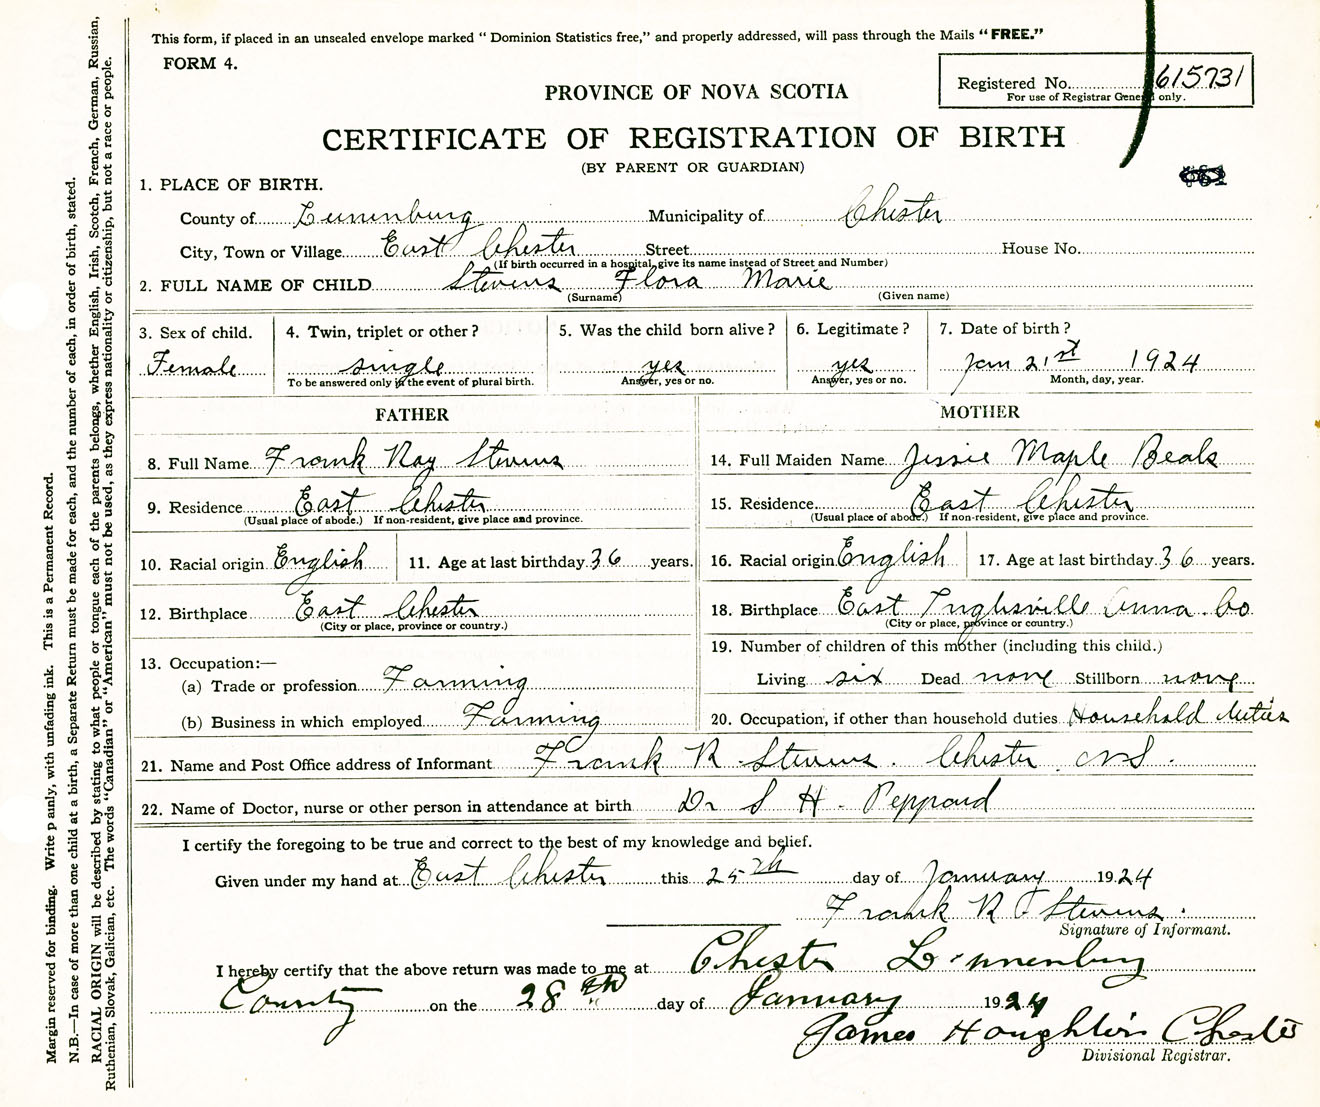 This form, if placed in an unsealed envelope marked “ Dominion Statistics free,” and properly addressed, will pass through the Mails “ FREE.”
FORM 4.
Registered No. 615731
For use of Registrar General only.
PROVINCE OF NOVA SCOTIA
CERTIFICATE OF REGISTRATION OF BIRTH
(BY PARENT OR GUARDIAN)
1. PLACE OF BIRTH.
County of Lunenburg Municipality of Chester
City, Town or Village East Chester Street House No.
(If birth occurred in a hospital, give its name instead of Street and Number)
2. FULL NAME OF CHILD Stevens Flora Marie
(Surname) (Given name)
3. Sex of child. 4. Twin, triplet or other ? 5. Was the child born alive ? 6. Legitimate ? 7. Date of birth ?
Female single yes yes Jan 21st 1924
To be answered only in the event of plural birth. Answer, yes or no. Answer, yes or no. Month, day, year.
FATHER MOTHER
8. Full Name Frank Ray Stevens 14. Full Maiden Name Jessie Maple Beals
9. Residence East Chester 15. Residence East Chester
(Usual place of abode.) If non-resident, give place and province. (Usual place of abode.) If non-resident, give place and province.
10. Racial origin English 11. Age at last birthday 36 years. 16. Racial origin English 17. Age at last birthday 36 years.
12. Birthplace East Chester 18. Birthplace East Inglisville Anna. Co.
(City or place, province or country.) (City or place, province or country.)
13. Occupation:— 19. Number of children of this mother (including this child.)
(a) Trade or profession Farming Living six Dead none Stillborn none
(b) Business in which employed Farming 20. Occupation, if other than household duties Household duties
21. Name and Post Office address of Informant Frank R Stevens. Chester NS.
22. Name of Doctor, nurse or other person in attendance at birth Dr S H. Peppard
I certify the foregoing to be true and correct to the best of my knowledge and belief.
Given under my hand at East Chester this 25th day of January 1924
Frank R Stevens.
Signature of Informant.
I hereby certify that the above return was made to me at Chester Lunenburg
County on the 28th day of January 1924
James Houghton Chester
Divisional Registrar.
Margin reserved for binding. Write p ainly, with unfading ink. This is a Permanent Record.
N.B.—In case of more than one child at a birth, a Separate Return must be made for each, and the number of each, in order of birth, stated.
RACIAL ORIGIN will be described by stating to what people or tongue each of the parents belongs, whether English, Irish, Scotch, French, German, Russian,
Ruthenian, Slovak, Galician, etc. The words “Canadian” or “American” must not be used, as they express nationality or citizenship, but not a race or people.